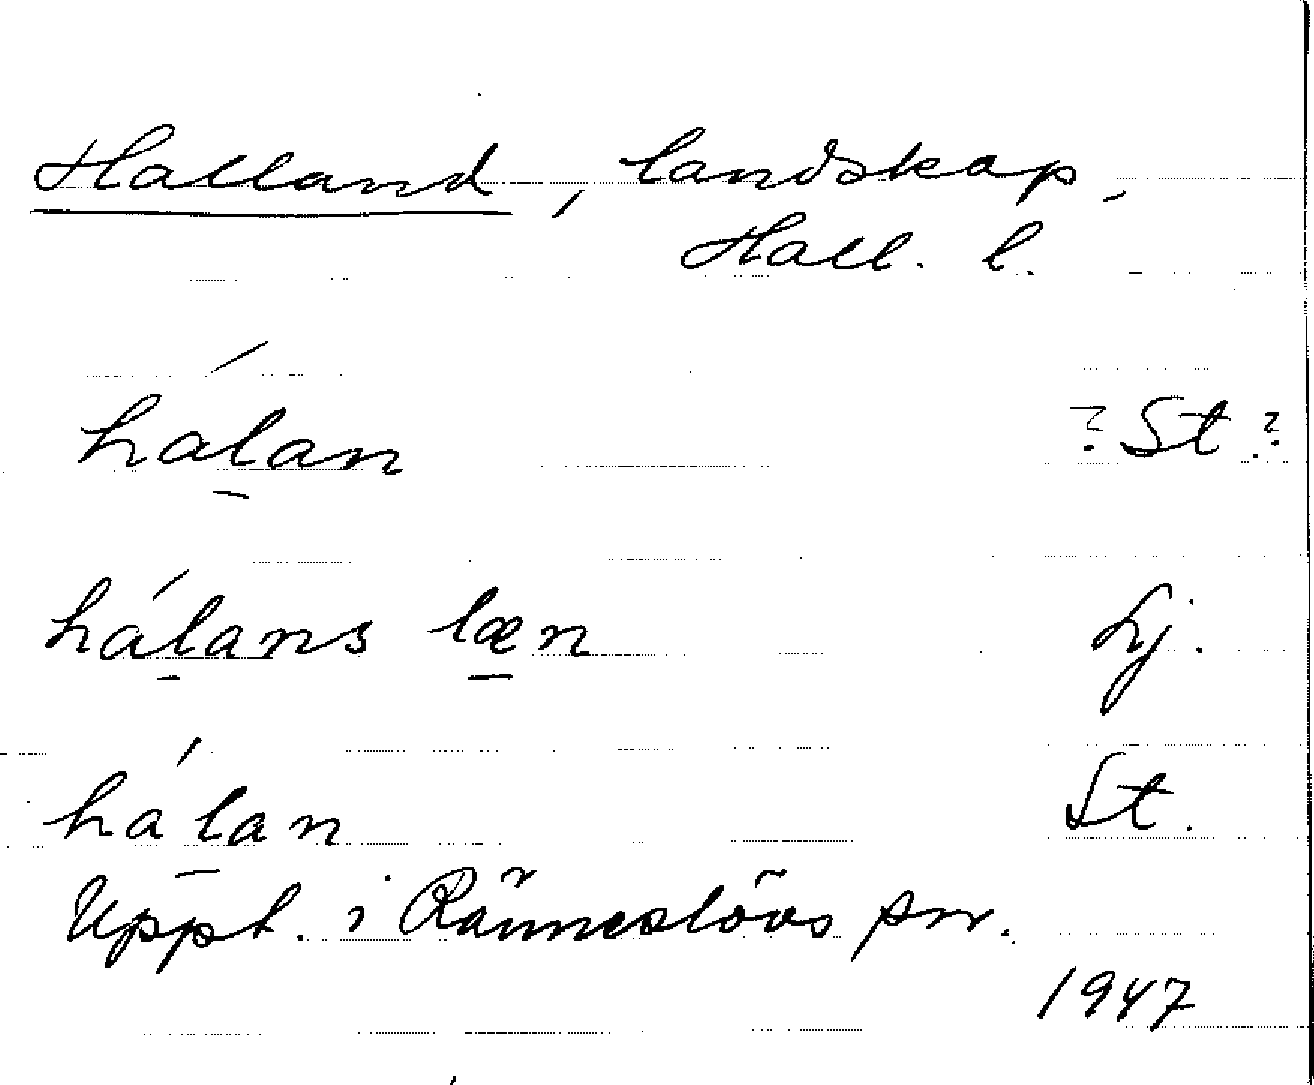 Halland, landskap,
Hall. l.
hálan ? St. ?
hálans læn Lj.
hálan St.
Uppt. i Ränneslövs sn.
1947